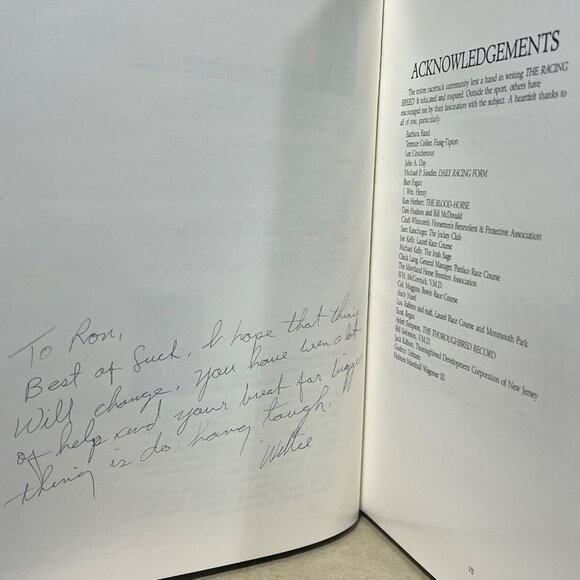 To Ron,
Best of luck. I hope that things
Will change. You have been a lot
of help and your break for bigger
things is do. hang tough.
Willie
ACKNOWLEDGEMENTS
The entire racetrack community lent a hand in writing THE RACING
BREED. It educated and inspired. Outside the sport, others have
encouraged me by their fascination with the subject. A heartfelt thanks to
all of you, particularly:
Barbara Baard
Terence Collier, Fasig-Tipton
Lee Couchenour
Julie A. Day
Michael P. Sandler, DAILY RACING FORM
Burt Fagan
J. Wm. Henry
Kim Herbert, THE BLOOD-HORSE
Don Hudson and Bill McDonald
Cindi Whitcomb, Horsemen's Benevolent & Protective Association
Sam Kanchuger, The Jockey Club
Joe Kelly, Laurel Race Course
Michael Kelly, The Irish Sage
Chick Lang, General Manager, Pimlico Race Course
The Maryland Horse Breeders Association
W.H. McCormick, V.M.D.
Cal. Muggins, Bowie Race Course
Andy Narel
Lou Raffetto and staff, Laurel Race Course and Monmouth Park
Scott Regan
Arlett Simpson, THE THOROUGHBRED RECORD
Bill Solomon, V.M.D.
Jack Kallon, Thoroughbred Development Corporation of New Jersey
Gudrun
Holmes Marshall Wagoner III
VII